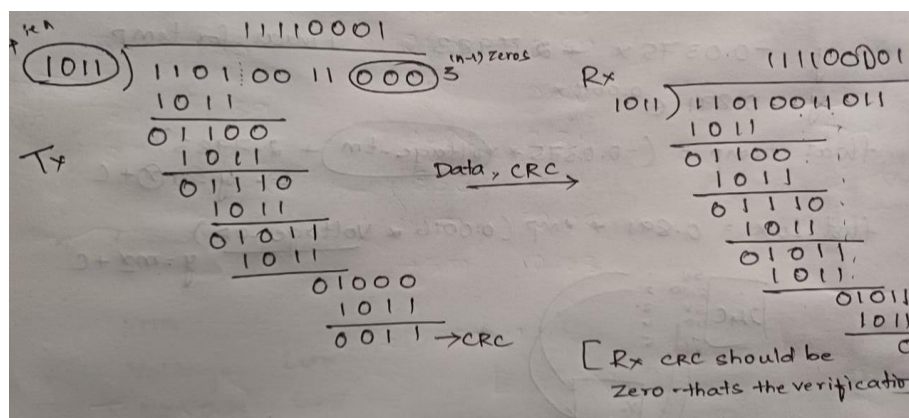 11110001
1011 ) 1101 00 11 000 3 (n-1) zeros
1011
01100
1011
01110
1011
01011
1011
01000
1011
0011 → CRC
Tx
Data, CRC
Rx
1111 00001
1011 ) 11010011 011
1011
01100
1011
01110
1011
01011
1011
01011
1011
0
[ Rx CRC should be
Zero - thats the verificatio